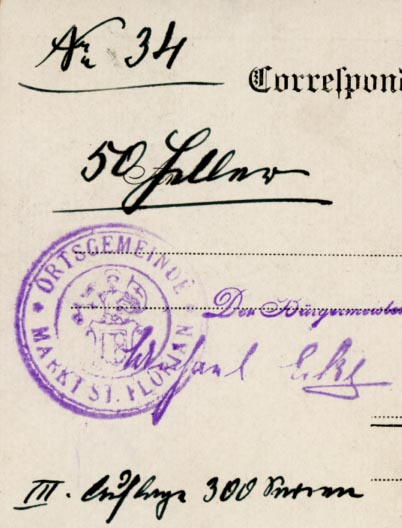 Nr. 34
Correspond
50 Heller
* ORTSGEMEINDE *
MARKT ST. FLORIAN
Der Bürgermeister
III. Auflage 300